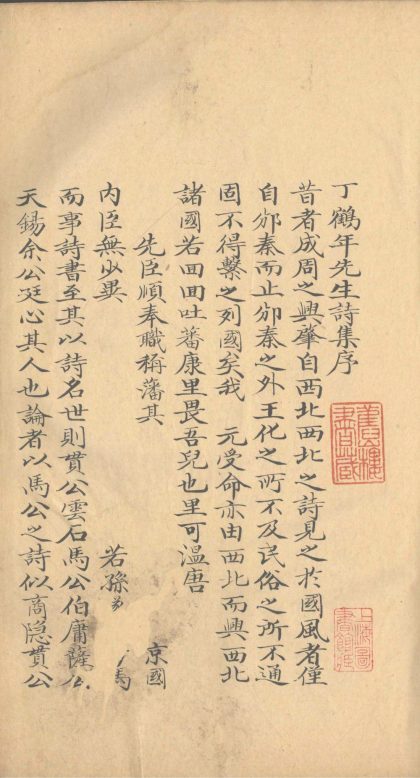 丁鶴年先生詩集序
昔者成周之興肇自西北西北之詩見之於國風者僅
自邠秦而止邠秦之外王化之所不及民俗之所不通
固不得繫之列國矣我 元受命亦由西北而興西北
諸國若回回吐蕃康里畏吾兒也里可溫唐
先臣順奉職稱藩其 京國
內臣無少異 若孫 馬
而事詩書至其以詩名世則貫公雲石馬公伯庸薩公
天錫余公廷心其人也論者以馬公之詩似商隐貫公
上海圖書館藏